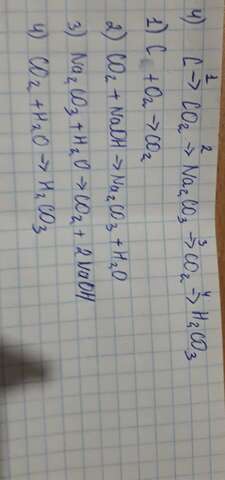 4) C →¹ CO₂ →² Na₂CO₃ →³ CO₂ →⁴ H₂CO₃
1) C + O₂ → CO₂
2) CO₂ + NaOH → Na₂CO₃ + H₂O
3) Na₂CO₃ + H₂O → CO₂ + 2NaOH
4) CO₂ + H₂O → H₂CO₃